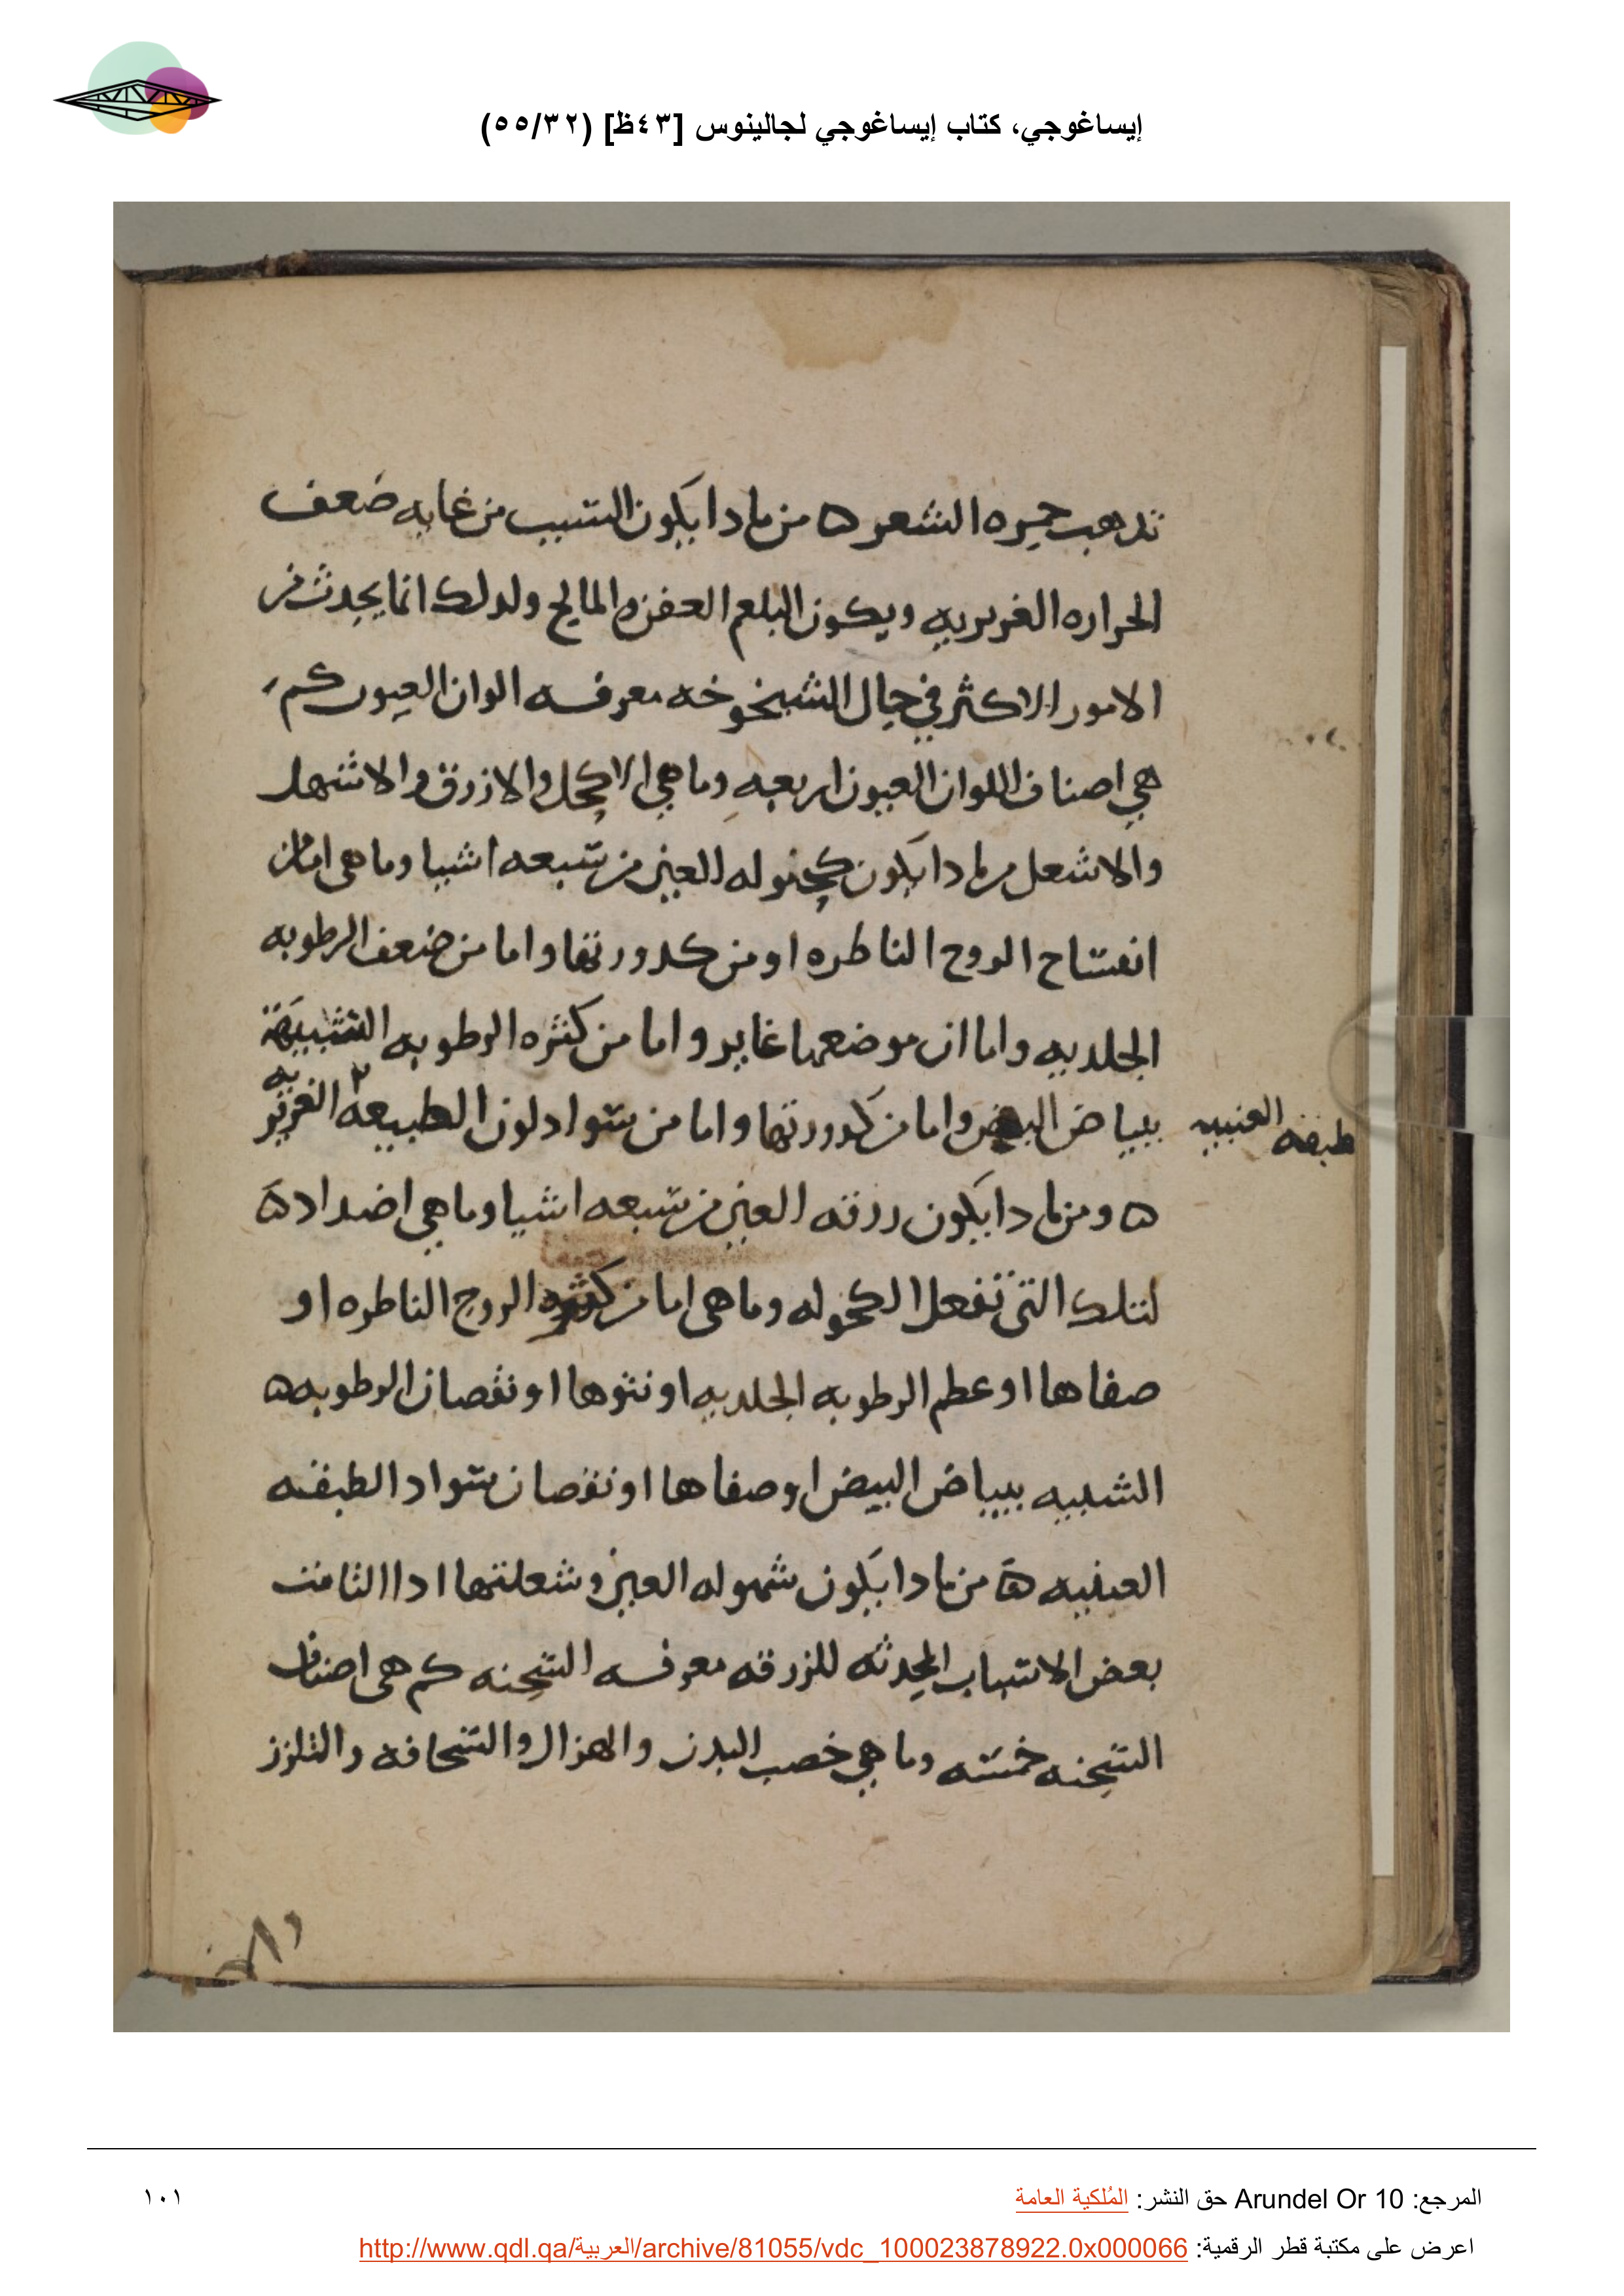 إيساغوجي، كتاب إيساغوجي لجالينوس [٤٣ظ] (٥٥/٣٢)
تدهب حمره الشعر ه من مادا يكون الشيب من غايه ضعف
الحراره الغريريه ويكون البلغم العفن والمالح ولدلك انما يحدث في
الامور الاكثر في حال الشيخوخه معرفه الوان العيون كم
هي اصناف اللوان العيون اربعه وما هي الاكحل والازرق والاشهل
والاشعل من مادا يكون كحوله العين من سبعه اشيا وما هي اما من
انفساح الروح الناظره او من كدورتها واما من ضعف الرطوبه
الجلديه واما ان موضعها غاير واما من كثره الرطوبه الشبيهة
ببياض البيض واما من كدورتها واما من سواد لون الطبيعه الغريزيه
طبقه العنبيه
ه ومن مادا يكون زرقه العين من سبعه اشيا وما هي اضداد ه
لتلك التي تفعل الكحوله وما هي اما من كثره الروح الناظره او
صفاها او عظم الرطوبه الجلديه او نتوها او نقصان الرطوبه ه
الشبيه ببياض البيض او صفاها او نقصان سواد الطبقه
العنبيه ه من مادا يكون شهوله العين وشعلتها ادا التامت
بعض الاسباب المحدثه للزرقه معرفه السحنه كم هي اصناف
السحنه خمسه وما هي خصب البدن والهزال والسحافه والتلزز
المرجع: Arundel Or 10 حق النشر: المُلكية العامة
١٠١
اعرض على مكتبة قطر الرقمية: http://www.qdl.qa/العربية/archive/81055/vdc_100023878922.0x000066